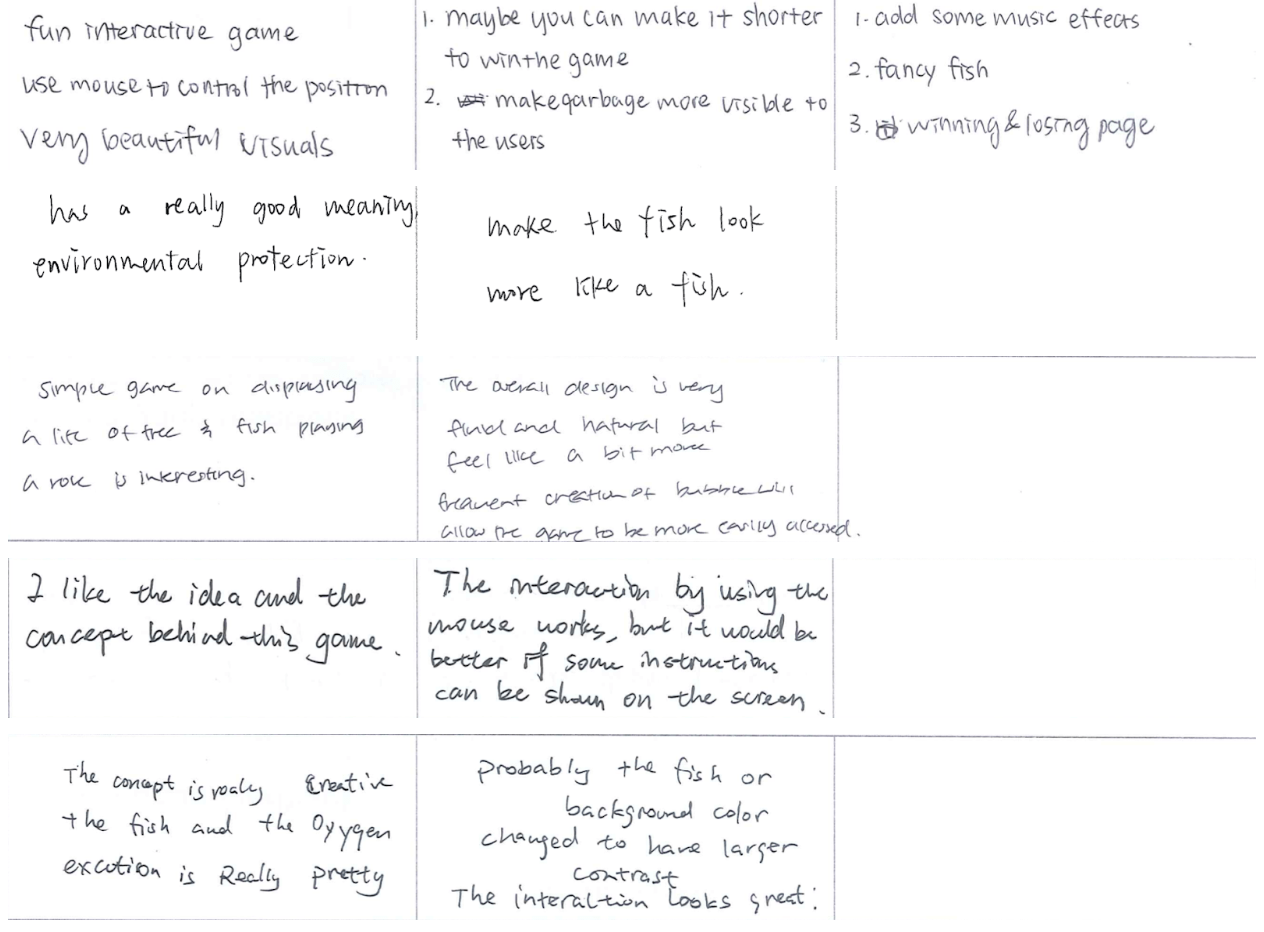 fun interactive game
use mouse to control the position
very beautiful visuals
1. maybe you can make it shorter
to win the game
2. make garbage more visible to
the users
1. add some music effects
2. fancy fish
3. winning & losing page
has a really good meaning,
environmental protection.
make the fish look
more like a fish.
simple game on displaying
a life of tree & fish playing
a role is interesting.
The overall design is very
fluid and natural but
feel like a bit more
frequent creation of bubble will
allow the game to be more easily accessed.
I like the idea and the
concept behind this game.
The interaction by using the
mouse works, but it would be
better if some instructions
can be shown on the screen.
The concept is realy Creative
the fish and the Oyygen
excution is Really pretty
Probably the fish or
background color
changed to have larger
contrast
The interaction looks great!